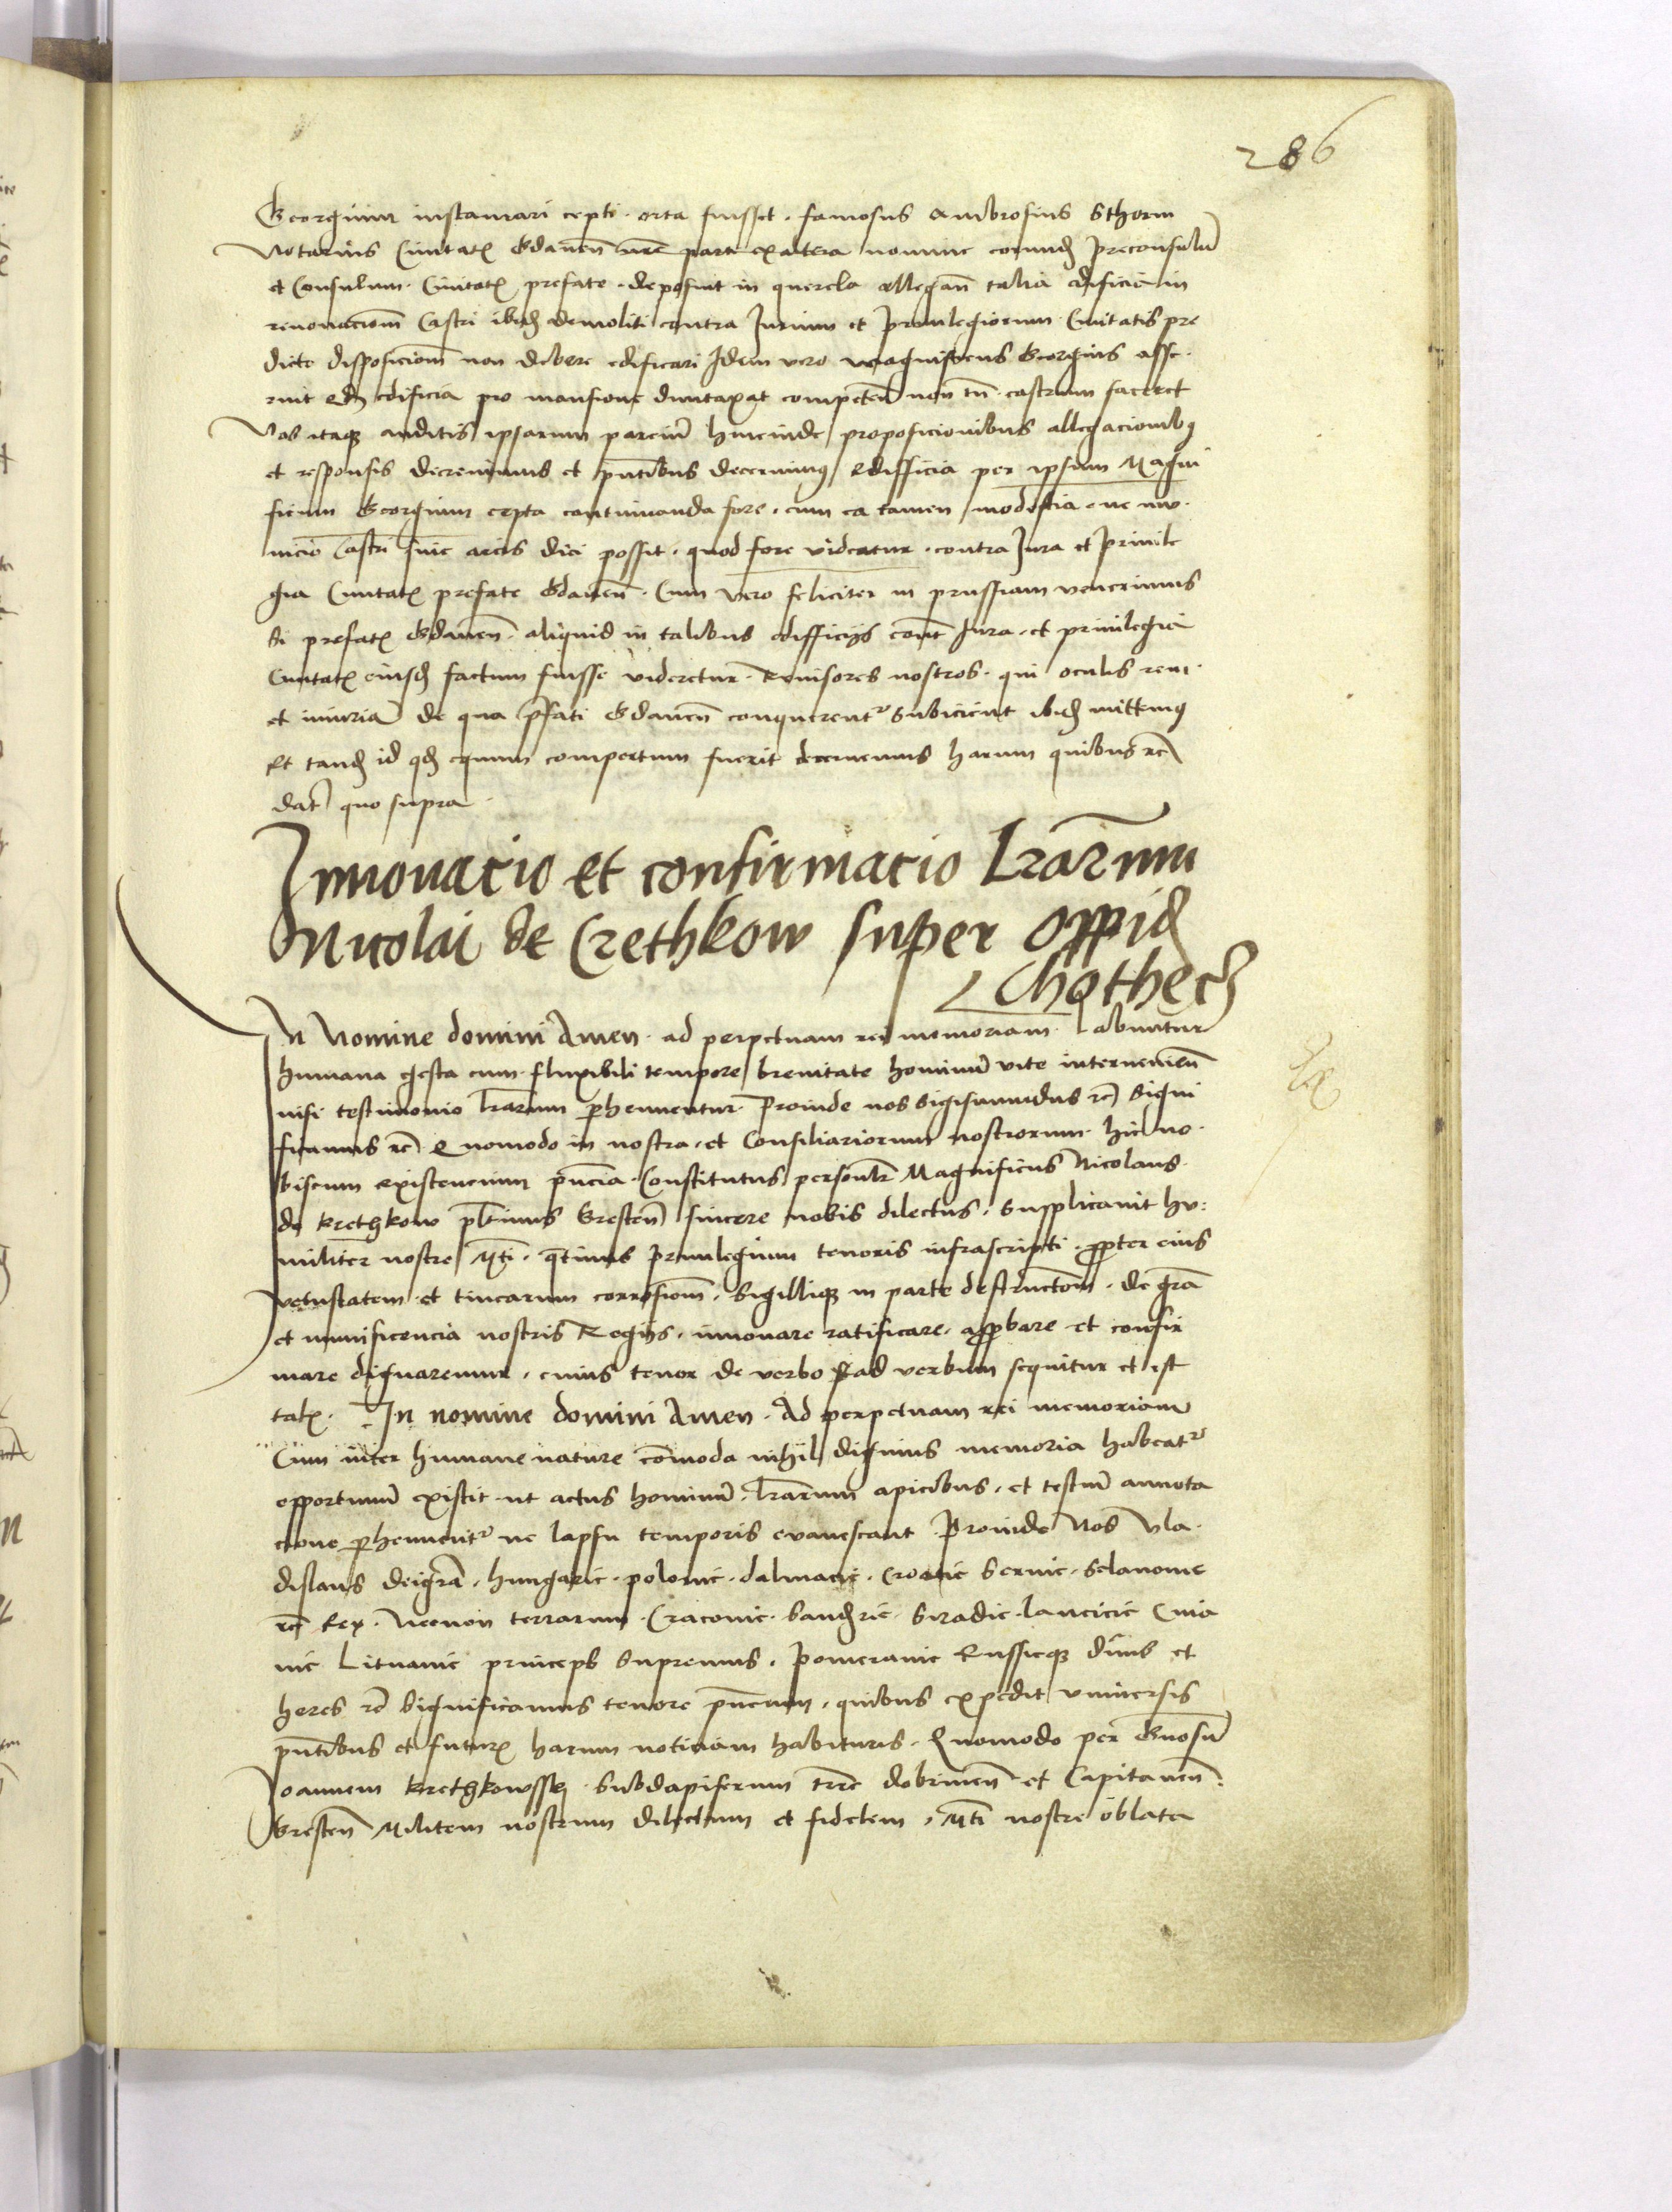 286
Georgium instaurari cepti. orta fuisset. famosus Ambrosius Sthorm
Notarius Civitatꝭ Gdaneñ nr̃e parte ex altera nomine eorundꝫ preconsulũ
et Consulum. Civitatꝭ prefate. deposuit in querela allegañ talia edificia in
renovacionẽ Castri ibidꝫ demoliti contra Jurium et privilegiorum Civitatis pre
dicte disposicionẽ non debere edificari Idem vero magnificus Georgius asse-
ruit edificia pro mansione duntaxat competeñ non tñ castrum faceret
Nos itaqꝫ auditis ipsarum parciũ hincinde proposicionibus allegacionibꝰ
et responsis decrevimus et pñtibus decernimꝰ edifficia per ipsum Magni
ficum Georgium cepta continuanda fore. cum ea tamen modestia. ne mu-
nicio Castri sive arcis dici possit. quod fore videatur. contra Jura et privile
gia Civitatꝭ prefate Gdaneñ. Cum vero feliciter in prussiam venerimus
Si prefatꝭ Gdaneñ. aliquid in talibus edifficijs contˀ Jura. et privilegia
Civitatꝭ eiusdꝫ factum fuisse videretur. Revisores nostros. qui oculis rem
et iniuriã de qua p̃fati Gdaneñ conquerentˀ subiciẽt ibidꝫ mittemꝰ
Et tandꝫ id qdꝫ equum compertum fuerit decernemus harum quibus ꝛc̃
dat̃ quo supra
Innovacio et confirmacio Lrãrum
Nicolai de Crethkow super oppidꝫ
Chothecz
In Nomine domini Amen. ad perpetuam rei memoriam. Labuntur
humana gesta cum fluxibili tempore brevitate hominũ vite intervenieñ
nisi testimonio lrãrum ꝑhennentur. Proinde nos Sigismundus ꝛc̃ Signi
ficamus ꝛc̃ Quomodo in nostra. et Consiliariorum nostrorum. hic no-
biscum existencium pñcia. Constitutus personalr̃ Magnificus Nicolaus
de Krethkow pltinus Bresteñ sincere nobis dilectus. Supplicavit hu-
militer nostre Mti. qtinus privilegium tenoris infrascripti. ꝓpter eius
vetustatem et tinearum corrosionẽ. Sigilliqꝫ in parte destructionẽ. de grã
et munificencia nostris Regijs. innovare ratificare. aꝓbare et confir
mare dignaremur. cuius tenor de verbo ad verbum sequitur et est
talꝭ. In nomine domini Amen. Ad perpetuam rei memoriam
Cum inter humane nature cõmoda nihil dignius memoria habeatˀ
opportunũ existit ut actus hominũ. lrãrum apicibus. et testiũ annota
cione ꝑhennentˀ ne lapsu temporis evanescant. Proinde Nos Vla-
dislaus dei grã. hungarie. polonie. dalmacie. Croacie Servie. Sclavonie
ꝛc̃ Rex. Necnon terrarum. Cracovie. Sandꝫrie. Siradie. lancicie Cuia
vie Lituanie princeps Supremus. Pomeranie Russieqꝫ dñus et
heres ꝛc̃ Significamus tenore pñcium. quibus expedit universis
pñtibus et futurꝭ harum noticiam habituris. Quomodo per Gnosũ
Joannem Krethkowsky. Subdapiferum tr̃re dobrineñ et Capitaneũ
Bresteñ Militem nostrum dilectum et fidelem. Mti nostre oblata